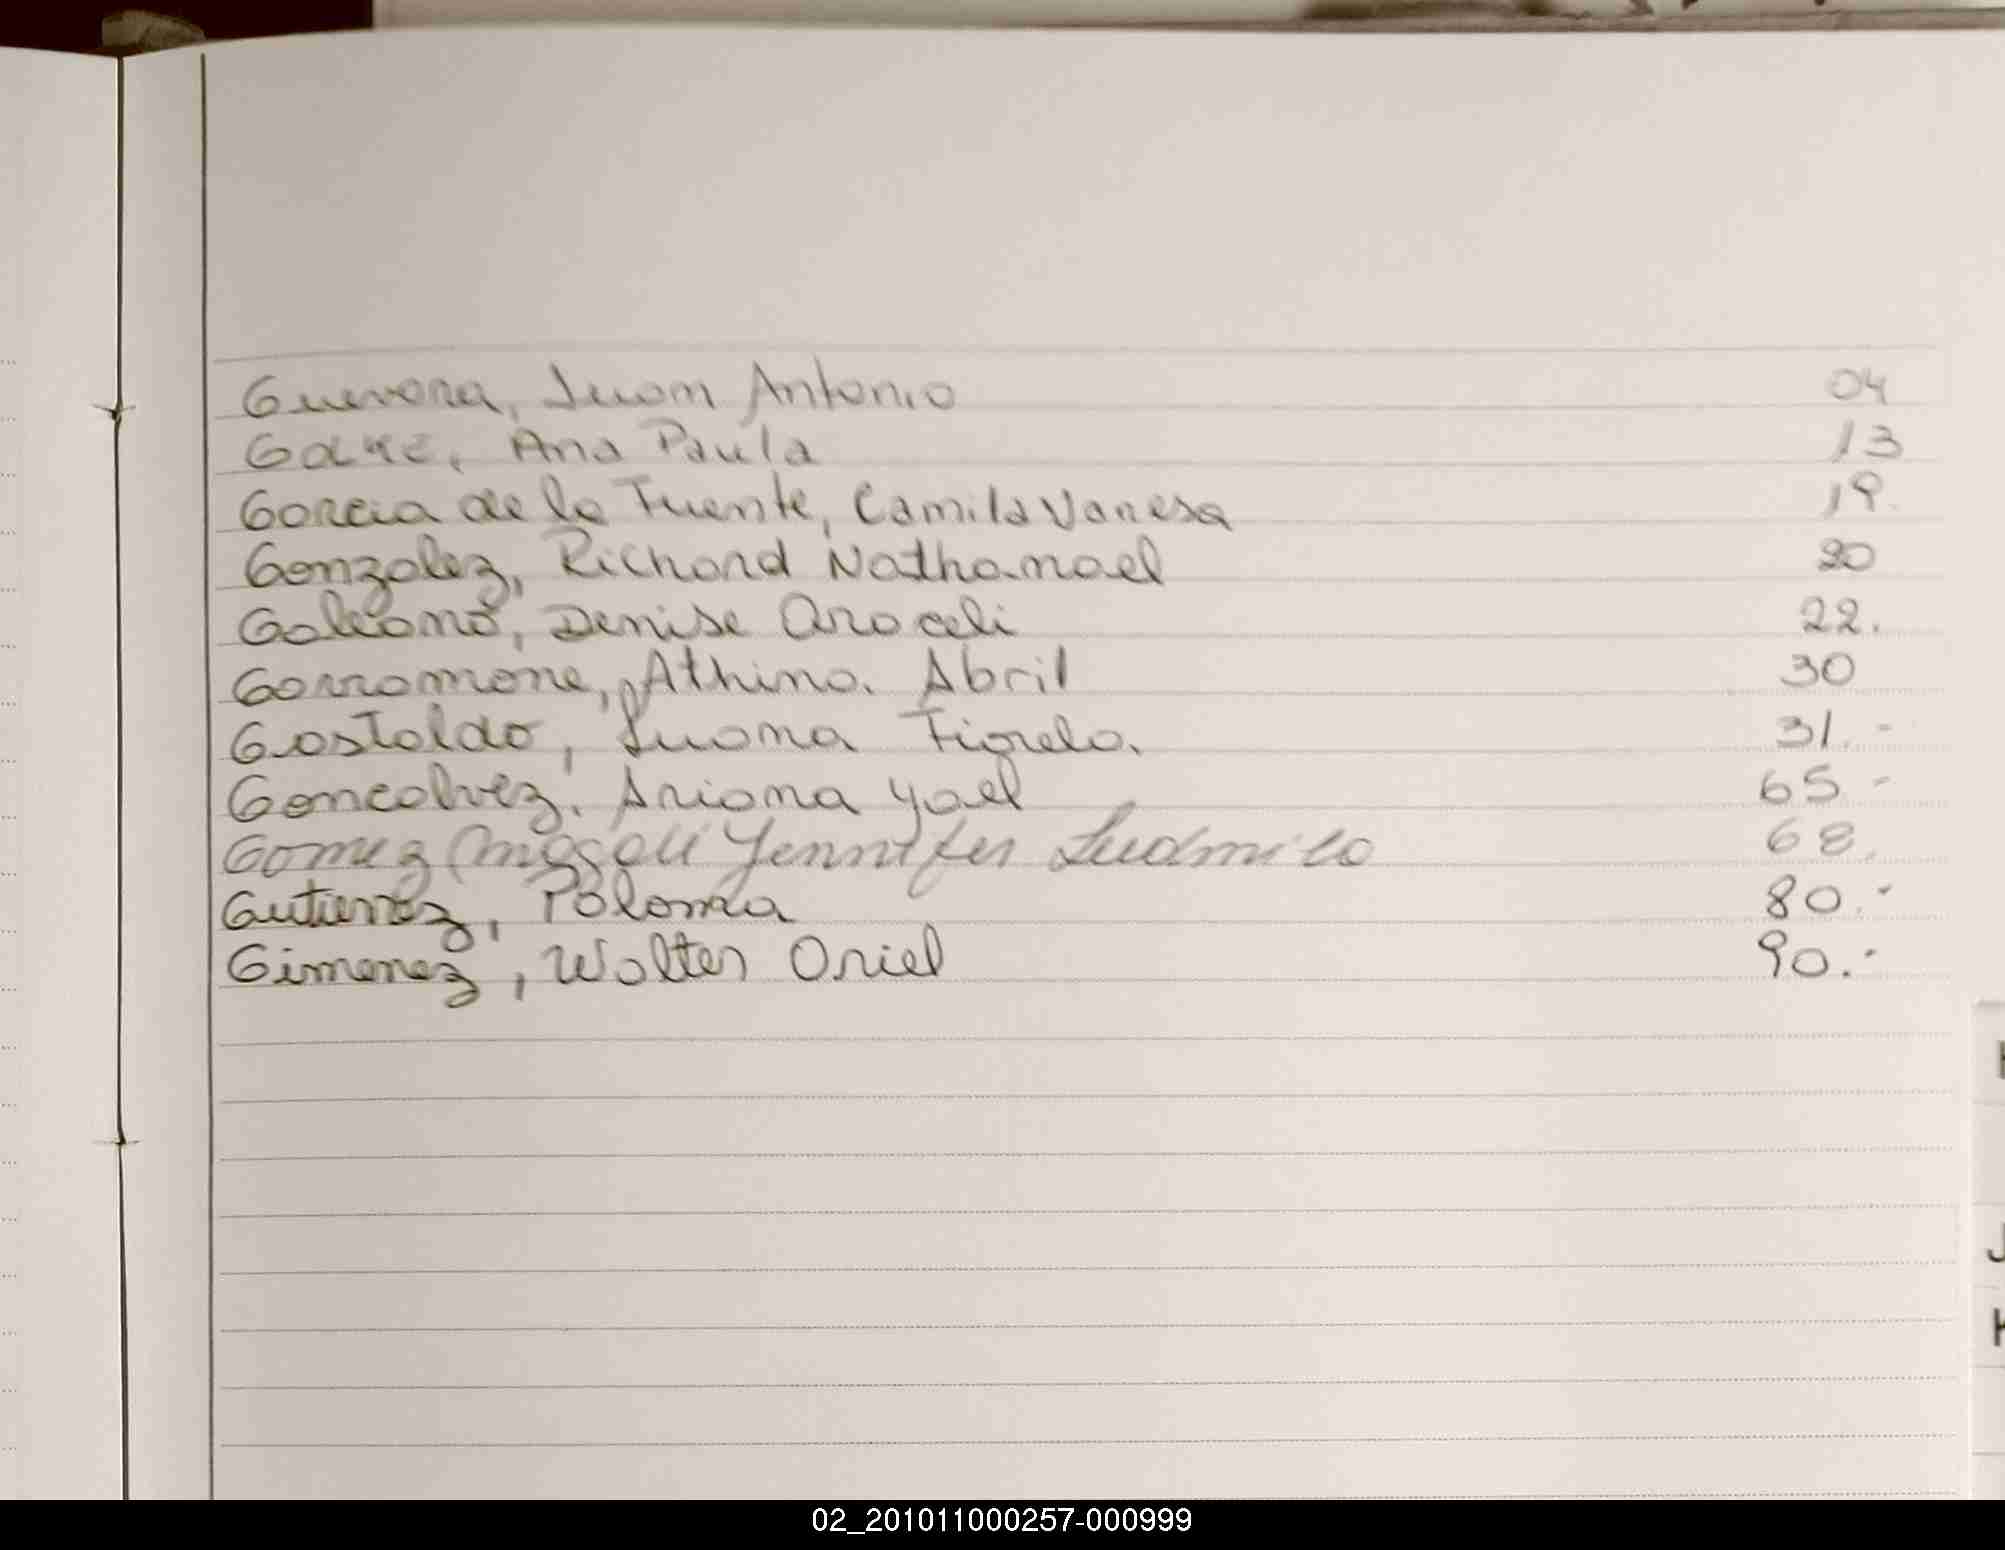 Guevara, Juan Antonio 04
Ana Paula 13
Garcia de la Fuente, Camila Vanesa 19.
Gonzalez, Richard Nathanael 20
Galeano, Denise Araceli 22.
Garramone, Athina. Abril 30
Gastaldo, Luana Fiorela. 31.-
Goncalvez. Ariana Yael 65-
Gomez Jennifer Ludmila 68.
Gutierrez, Paloma 80.-
Gimenez, Walter Oriel 90.-
J
K
02_201011000257-000999